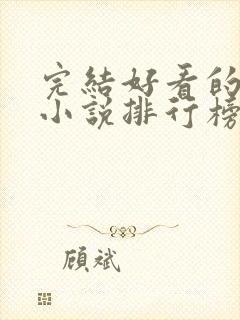 完結好看的
小說排行榜
顧斌